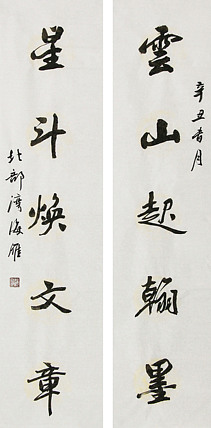 雲山起翰墨
辛丑春月
星斗煥文章
北部湾海雁